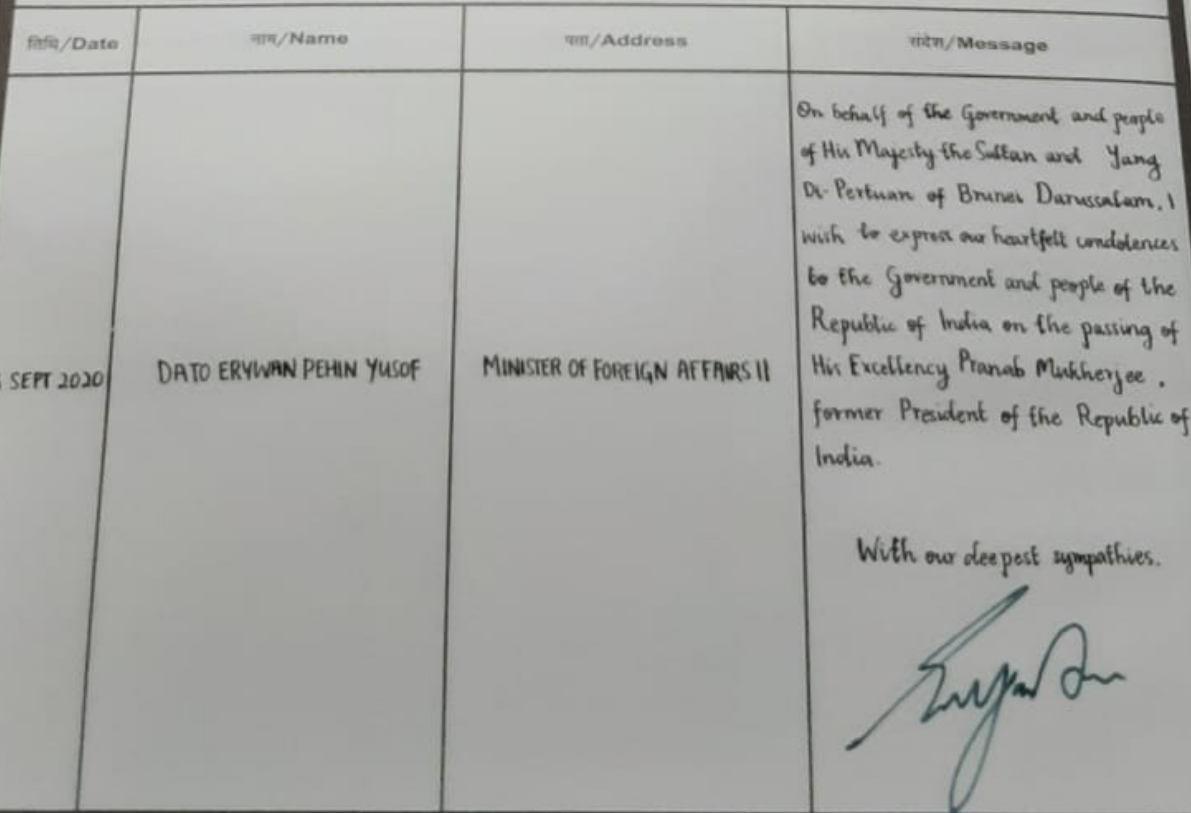 तिथि/Date
नाम/Name
पता/Address
संदेश/Message
SEPT 2020
DATO ERYWAN PEHIN YUSOF
MINISTER OF FOREIGN AFFAIRS II
On behalf of the Government and people
of His Majesty the Sultan and Yang
Di-Pertuan of Brunei Darussalam, I
wish to express our heartfelt condolences
to the Government and people of the
Republic of India on the passing of
His Excellency Pranab Mukherjee,
former President of the Republic of
India.
With our deepest sympathies.